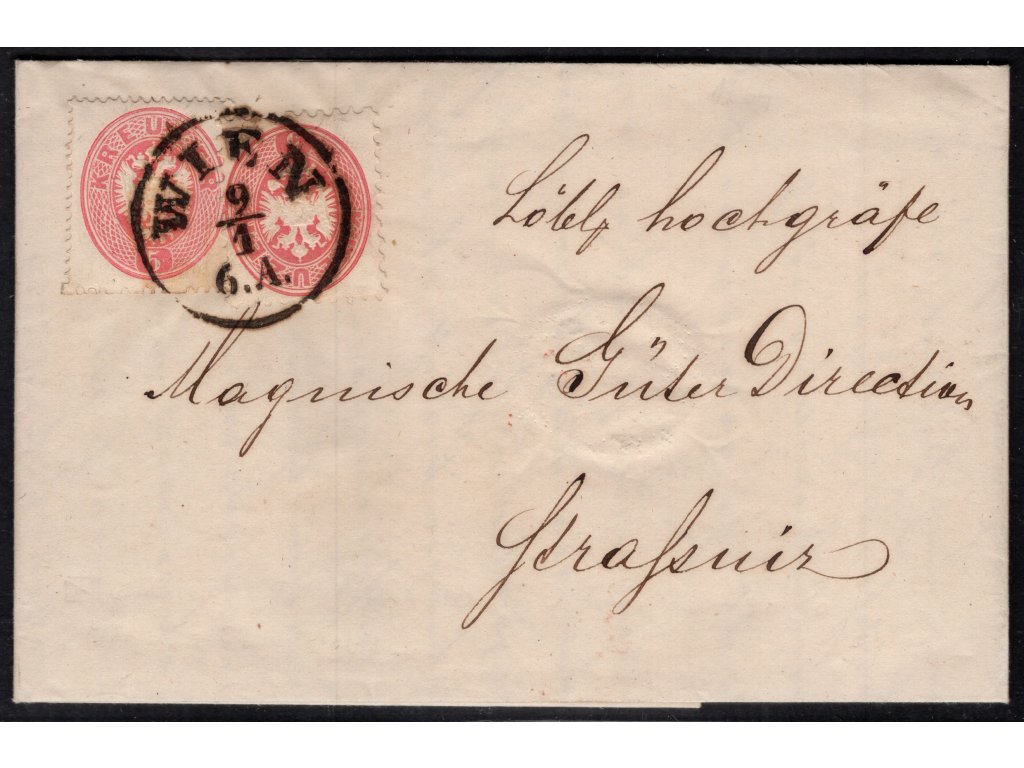 KREU
WIEN
9/1
6.A.
Löbl. hochgräfe
Magnische Güter Direction
Strassniz